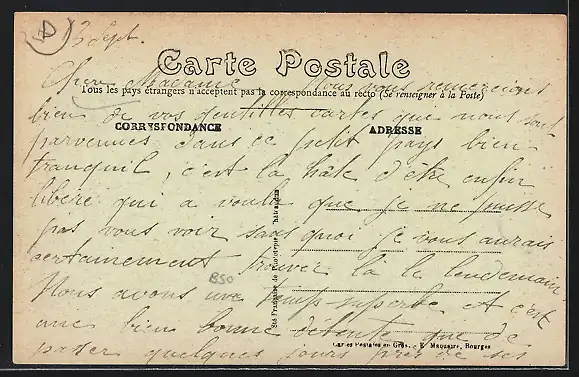 3 Sept.
Carte Postale
Chère Madame Nous vous remercions
Tous les pays étrangers n'acceptent pas la correspondance au recto (Se renseigner à la Poste)
bien de vos gentilles cartes que nous sont
CORRESPONDANCE
ADRESSE
parvenues dans ce petit pays bien
tranquil, c'est la hâte d'être enfin
libéré qui a voulu que je ne puisse
pas vous voir sans quoi je vous aurais
certainement trouver là le lendemain.
B50
Nous avons une temps superbe. et c'est
une bien bonne détente que de
Cartes Postales en Gros, E. Maquaire, Bourges
passer quelques jours près de ses
Sté Française de Phototypie